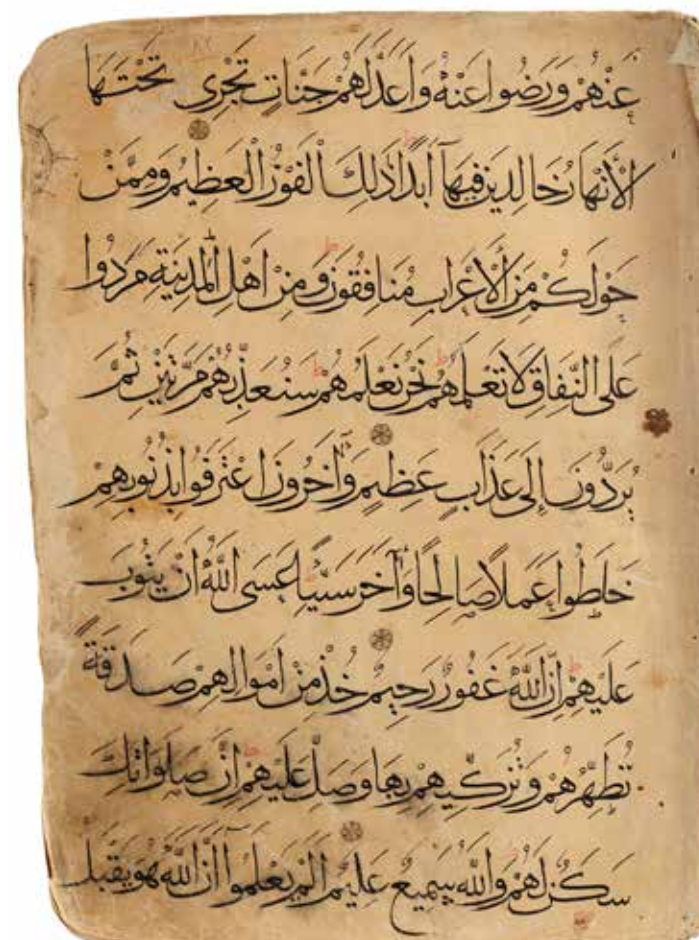 عَنْهُمْ وَرَضُوا عَنْهُ وَاَعَدَّ لَهُمْ جَنَّاتٍ تَجْرِى تَحْتَهَا
الْاَنْهَارُ خَالِدِينَ فِيهَآ اَبَدًا ذٰلِكَ الْفَوْزُ الْعَظِيمُ وَمِمَّنْ
حَوْلَكُمْ مِنَ الْاَعْرَابِ مُنَافِقُونَ وَمِنْ اَهْلِ الْمَدِينَةِ مَرَدُوا
عَلَى النِّفَاقِ لَا تَعْلَمُهُمْ نَحْنُ نَعْلَمُهُمْ سَنُعَذِّبُهُمْ مَرَّتَيْنِ ثُمَّ
يُرَدُّونَ اِلَى عَذَابٍ عَظِيمٍ وَاٰخَرُونَ اعْتَرَفُوا بِذُنُوبِهِمْ
خَلَطُوا عَمَلًا صَالِحًا وَاٰخَرَ سَيِّئًا عَسَى اللّٰهُ اَنْ يَتُوبَ
عَلَيْهِمْ اِنَّ اللّٰهَ غَفُورٌ رَحِيمٌ خُذْ مِنْ اَمْوَالِهِمْ صَدَقَةً
تُطَهِّرُهُمْ وَتُزَكِّيهِمْ بِهَا وَصَلِّ عَلَيْهِمْ اِنَّ صَلَوَاتِكَ
سَكَنٌ لَهُمْ وَاللّٰهُ سَمِيعٌ عَلِيمٌ اَلَمْ يَعْلَمُوا اَنَّ اللّٰهَ هُوَ يَقْبَلُ